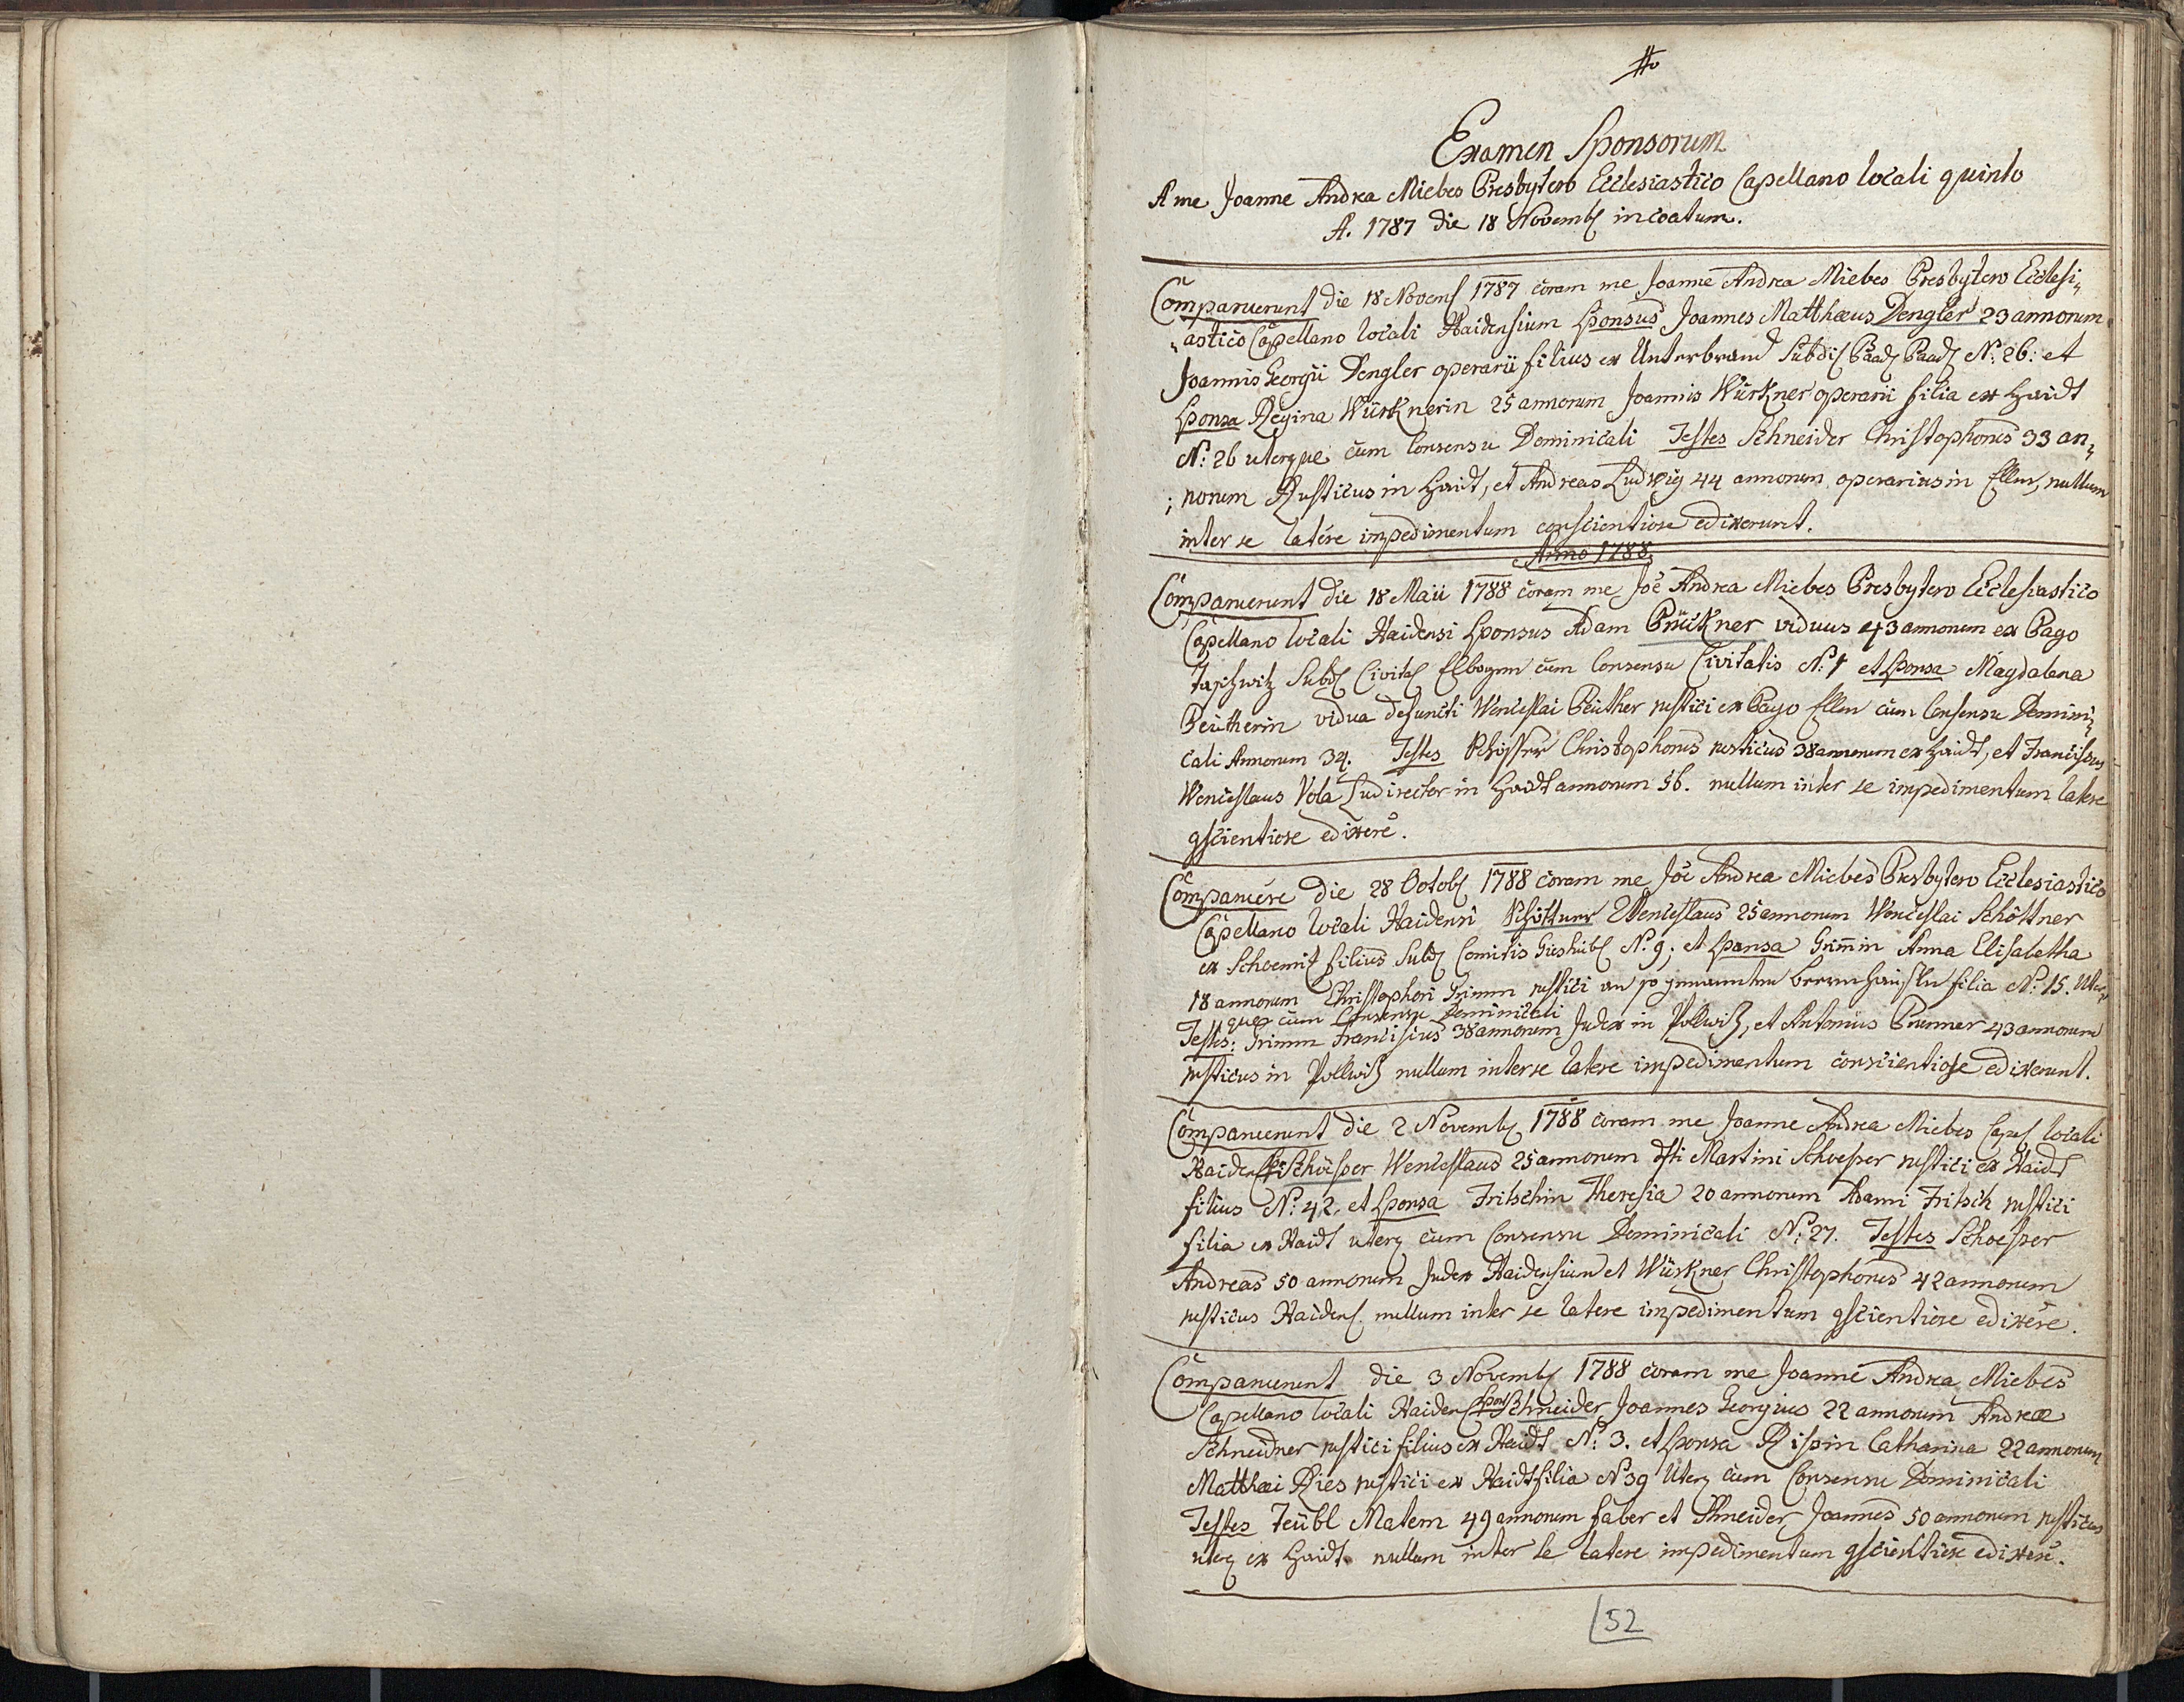 Examen Sponsorum
A me Joanne Andrea Miebes Presbytero Ecclesiastico Capellano locali quinto
A. 1787 die 18 Novemb incoatum.
Comparuerunt die 18 Novem 1787 coram me Joanne Andrea Miebes Presbytero Ecclesi„
„astico Capellano locali Haidensium Sponsus Joannes Matthæus Dengler 23 annorum
Joannis Georgii Dengler operarii filius ex Unterbrand Subdi N: 26: et
Sponsa Regina Würknerin 25 annorum Joannis Würkner operarii filia ex Haidt
N: 26 uterque cum Consensu Dominicali Testes Schneider Christophorus 33 an„
norum Rusticus in Haidt, et Andreas Ludwig 44 annorum operarius in Ellm, nullum
inter se latére impedimentum conscientiose edixerunt.
Anno 1788
Comparuerunt die 18 Maii 1788 coram me Joē Andrea Miebes Presbytero Ecclesiastico
Capellano locali Haidensi Sponsus Adam Prückner viduus 43 annorum ex Pago
Taschwitz Subd Civitas Elbogen cum Consensu Civitatis N: 1 et Sponsa Magdalena
Beütherin vidua defuncti Wenceslai Beüther rustici ex Pago Ellm cum Consensu Domini„
cali Annorum 34. Testes Christophorus rusticus 38 annorum ex Haidt, et Franciscus
Wenceslaus Vola Ludirector in Haidt annorum 56. nullum inter se impedimentum latere
gscientiose edixere.
Comparuére die 28 Octob 1788 coram me Joē Andrea Miebes Presbytero Ecclesiastico
Capellano locali Haidensi Schöttner Wenceslaus 25 annorum Wenceslai Schöttner
ex Schoemitz filius Subd Comitis Gieshüb N: 9; et Sponsa Grim̄in Anna Elisabetha
18 annorum Christophori Grimm rustici an so genannten filia N: 15. Uter„
que cum Consensu Dominicali
Testes: Grimm Franciscus 38 annorum Judex in Pollwitz, et Antonius Brunner 43 annorum
rusticus in Pollwitz nullum inter se latere impedimentum conscientiose edixerunt.
Comparuerunt die 2 Novemb 1788 coram me Joanne Andrea Miebes Capel locali
Haidens Schoesser Wenceslaus 25 annorum Martini Schoesser rustici ex Haidt
filius N: 42, et Sponsa Fritschin Theresia 20 annorum Adami Fritsch rustici
filia ex Haidt uterq cum Consensu Dominicali N: 27. Testes Schoesser
Andreas 50 annorum Judex Haidensium et Würkner Christophorus 42 annorum
rusticus Haidens. nullum inter se latere impedimentum gscientiose edixére.
Comparuerunt die 3 Novemb 1788 coram me Joanne Andrea Miebes
Capellano locali Haidens Spons Schneider Joannes Georgius 22 annorum Andreæ
Schneidner rustici filius ex Haidt N: 3. et Sponsa Rispin Catharina 22 annorum
Matthæi Ries rustici ex Haidt filia N 39 Uterq cum Consensu Dominicali
Testes Teübl Matern 49 annorum faber et Schneider Joannes 50 annorum rusticus
uterq ex Haidt. nullum inter se latere impedimentum gscientiose edixere.
52